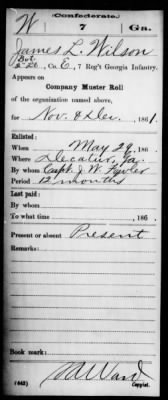 Confederate.
W 7 Ga.
James L. Wilson
Bvt 2 Lt, Co. E, 7 Reg't Georgia Infantry.
Appears on
Company Muster Roll
of the organization named above,
for Nov. & Dec, 1861.
Enlisted:
When May 29, 186 .
Where Decatur, Ga.
By whom Capt. J. W. Fowler
Period 12 months
Last paid:
By whom
To what time , 186 .
Present or absent Present
Remarks:
Book mark:
(642) Copyist.